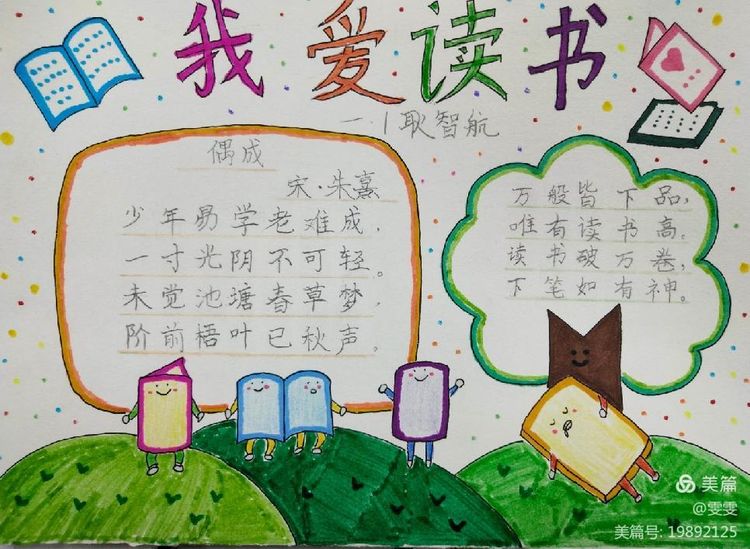 我爱读书
一.1耿智航
偶成
宋·朱熹
少年易学老难成，
一寸光阴不可轻。
未觉池塘春草梦，
阶前梧叶已秋声。
万般皆下品，
唯有读书高。
读书破万卷，
下笔如有神。
美篇
@雯雯
美篇号: 19892125